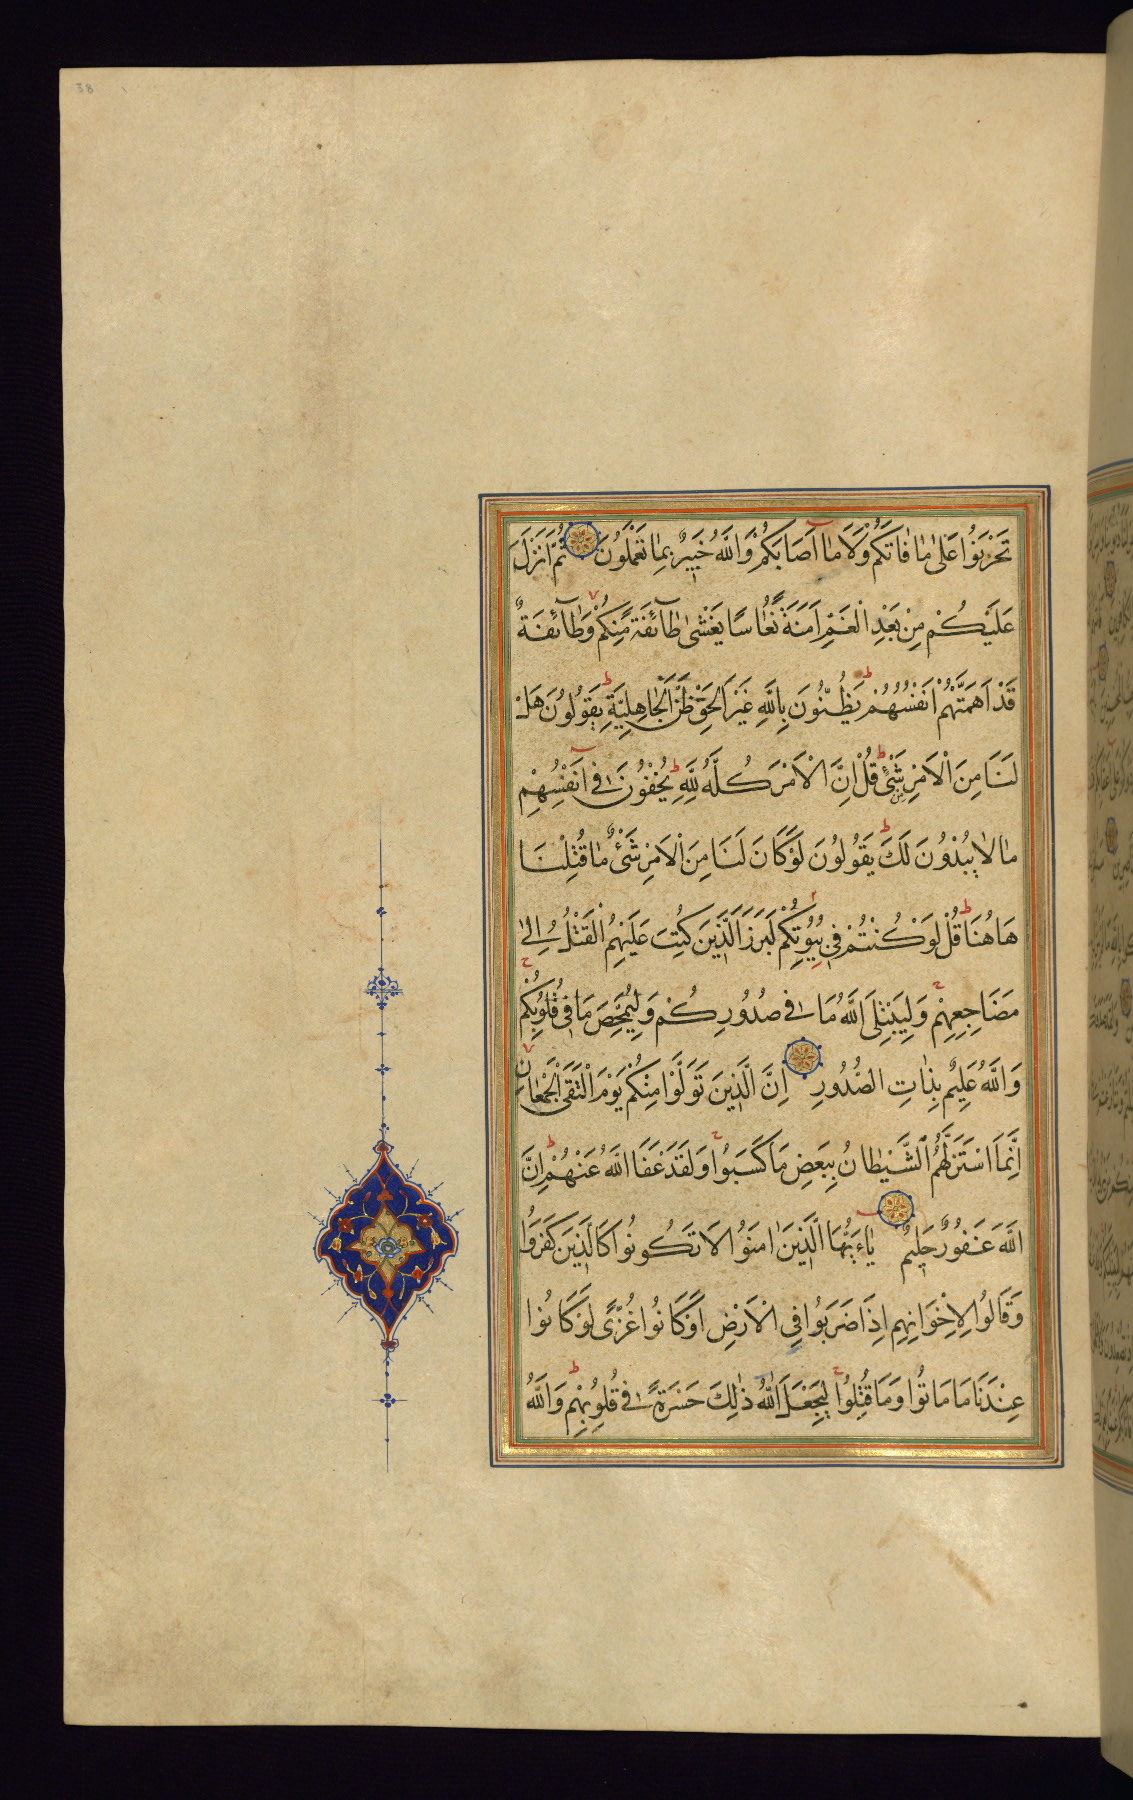 38
تَحْزَنُوا عَلىٰ مٰا فٰاتَكُمْ وَلَا مٰآ اَصَابَكُمْ وَاللَّهُ خَبِيرٌ بِمٰا تَعْمَلُونَ ثُمَّ اَنْزَلَ
عَلَيْكُمْ مِنْ بَعْدِ الْغَمِّ اَمَنَةً نُعٰاسًا يَغْشىٰ طٰآئِفَةً مِنْكُمْ وَطٰآئِفَةٌ
قَدْ اَهَمَّتْهُمْ اَنْفُسُهُمْ يَظُنُّونَ بِاللَّهِ غَيْرَ الْحَقِّ ظَنَّ الْجٰاهِلِيَّةِ يَقُولُونَ هَلْ
لَنَا مِنَ الْاَمْرِ مِنْ شَيْءٍ قُلْ اِنَّ الْاَمْرَ كُلَّهُ لِلَّهِ يُخْفُونَ فِىٓ اَنْفُسِهِمْ
مٰا لٰا يُبْدُونَ لَكَ يَقُولُونَ لَوْ كَانَ لَنَا مِنَ الْاَمْرِ شَيْءٌ مٰا قُتِلْنَا
هَاهُنَا قُلْ لَوْ كُنْتُمْ فِى بُيُوتِكُمْ لَبَرَزَ الَّذِينَ كُتِبَ عَلَيْهِمُ الْقَتْلُ اِلىٰ
مَضَاجِعِهِمْ وَلِيَبْتَلِىَ اللَّهُ مَا فِى صُدُورِكُمْ وَلِيُمَحِّصَ مَا فِى قُلُوبِكُمْ
وَاللَّهُ عَلِيمٌ بِذٰاتِ الصُّدُورِ اِنَّ الَّذِينَ تَوَلَّوْا مِنْكُمْ يَوْمَ الْتَقَى الْجَمْعٰانِ
اِنَّمَا اسْتَزَلَّهُمُ الشَّيْطٰانُ بِبَعْضِ مَا كَسَبُوا وَلَقَدْ عَفَا اللَّهُ عَنْهُمْ اِنَّ
اللَّهَ غَفُورٌ حَلِيمٌ يٰاءَيُّهَا الَّذِينَ اٰمَنُوا لَا تَكُونُوا كَالَّذِينَ كَفَرُوا
وَقَالُوا لِاِخْوَانِهِمْ اِذَا ضَرَبُوا فِى الْاَرْضِ اَوْ كَانُوا غُزًّى لَوْ كَانُوا
عِنْدَنَا مَا مَاتُوا وَمَا قُتِلُوا لِيَجْعَلَ اللَّهُ ذٰلِكَ حَسْرَةً فِى قُلُوبِهِمْ وَاللَّهُ